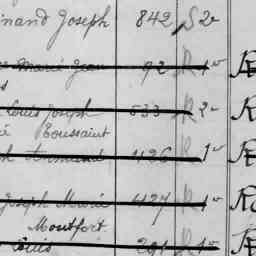 inand Joseph 842 S 2º
Marie Jean 92 R 1º R
s
Louis Joseph 533 R 2º R
é Toussaint
h Armand 1126 R 1º R
Joseph Marie 427 R 1º R
Montfort
Louis 291 R 1º R